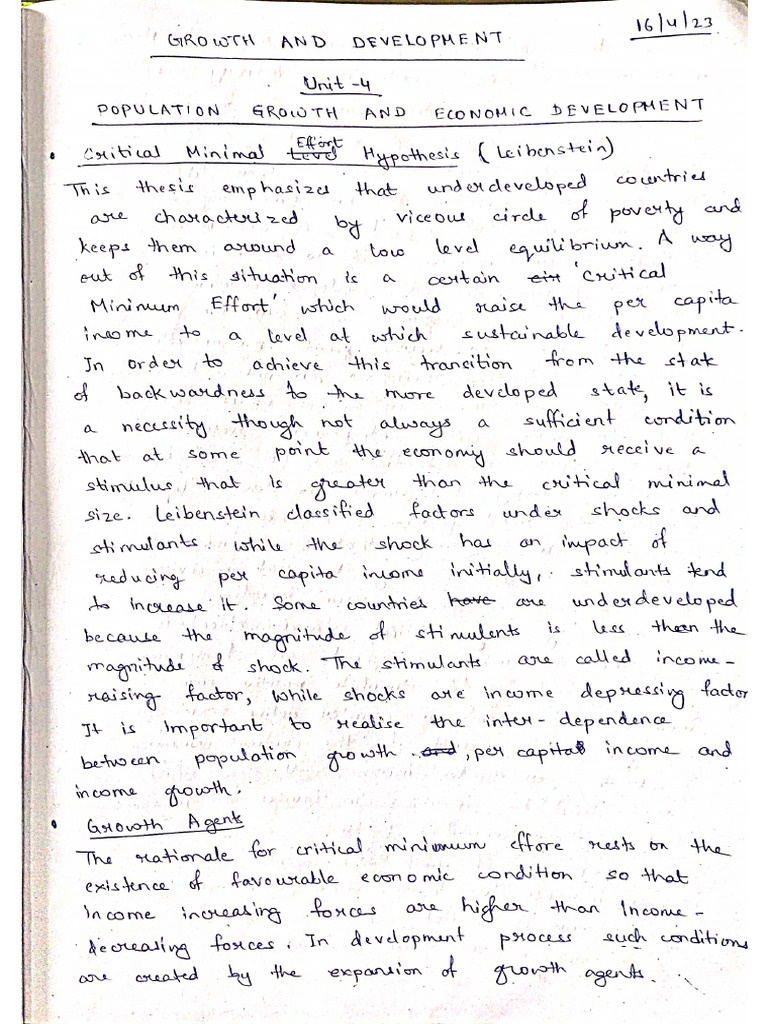 16/4/23
GROWTH AND DEVELOPMENT
Unit-4
POPULATION GROWTH AND ECONOMIC DEVELOPMENT
• Critical Minimal Level Effort Hypothesis (Leibenstein)
This thesis emphasizes that underdeveloped countries
are characterized by viceous circle of poverty and
keeps them around a low level equilibrium. A way
out of this situation is a certain 'Critical
Minimum Effort' which would raise the per capita
income to a level at which sustainable development.
In order to achieve this transition from the state
of backwardness to the more developed state, it is
a necessity though not always a sufficient condition
that at some point the economy should receive a
stimulus that is greater than the critical minimal
size. Leibenstein classified factors under shocks and
stimulants. while the shock has an impact of
reducing per capita income initially, stimulants tend
to increase it. Some countries have are underdeveloped
because the magnitude of stimulents is less than the
magnitude of shock. The stimulants are called income-
raising factor, while shocks are income depressing factor
It is important to realise the inter-dependence
between population growth and, per capita income and
income growth.
• Growth Agents
The rationale for critical minimum effore rests on the
existence of favourable economic condition so that
income increasing forces are higher than Income-
decreasing forces. In development process such conditions
are created by the expansion of growth agents.